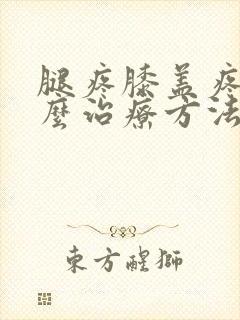 腿疼膝盖疼
麼治療方法
東方醒獅